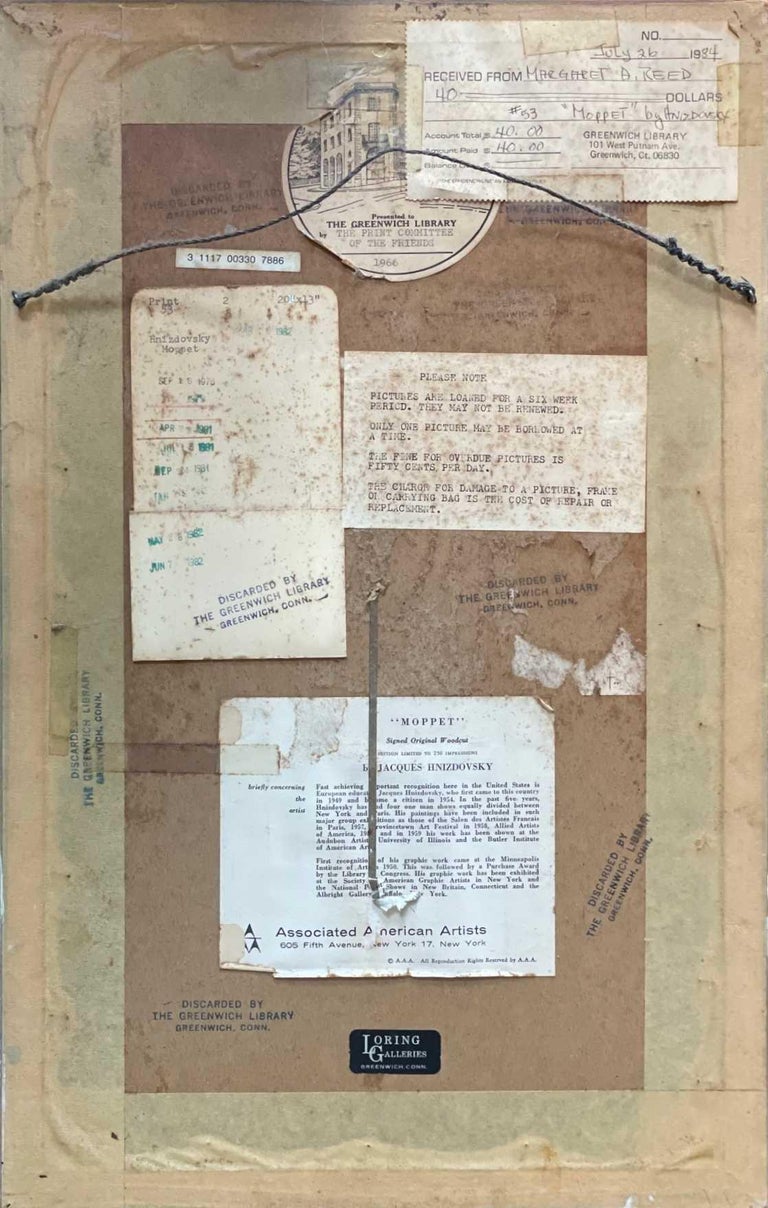 NO.
July 26 1984
RECEIVED FROM MARGARET A. REED
40 DOLLARS
#53 "MOPPET" by HNIZDOVSKY
Account Total $ 40.00
Amount Paid $ 40.00
Balance
GREENWICH LIBRARY
101 West Putnam Ave.
Greenwich, Ct. 06830
Presented to
THE GREENWICH LIBRARY
by THE PRINT COMMITTEE
OF THE FRIENDS
1966
DISCARDED BY
THE GREENWICH LIBRARY
GREENWICH, CONN.
3 1117 00330 7886
Print 2 20"x13"
53
Hnizdovsky
Moppet
1982
SEP 1978
APR 1981
1981
SEP 1981
JAN
MAY 1982
JUN 1982
DISCARDED BY
THE GREENWICH LIBRARY
GREENWICH, CONN.
PLEASE NOTE
PICTURES ARE LOANED FOR A SIX WEEK
PERIOD. THEY MAY NOT BE RENEWED.
ONLY ONE PICTURE MAY BE BORROWED AT
A TIME.
THE FINE FOR OVERDUE PICTURES IS
FIFTY CENTS PER DAY.
THE CHARGE FOR DAMAGE TO A PICTURE, FRAME
OR CARRYING BAG IS THE COST OF REPAIR OR
REPLACEMENT.
DISCARDED BY
THE GREENWICH LIBRARY
GREENWICH, CONN.
DISCARDED BY
THE GREENWICH LIBRARY
GREENWICH, CONN.
"MOPPET"
Signed Original Woodcut
EDITION LIMITED TO 250 IMPRESSIONS
JACQUES HNIZDOVSKY
briefly concerning
the
artist
Fast achieving important recognition here in the United States is
European educated Jacques Hnizdovsky, who first came to this country
in 1949 and became a citizen in 1954. In the past five years,
Hnizdovsky has had four one man shows equally divided between
New York and Paris. His paintings have been included in such
major group exhibitions as those of the Salon des Artistes Francais
in Paris, 1957, Provincetown Art Festival in 1958, Allied Artists
of America, and in 1959 his work has been shown at the
Audubon Artists University of Illinois and the Butler Institute
of American Art
First recognition of his graphic work came at the Minneapolis
Institute of Art 1950. This was followed by a Purchase Award
by the Library Congress. His graphic work has been exhibited
at the Society American Graphic Artists in New York and
the National Print Shows in New Britain, Connecticut and the
Albright Gallery, Buffalo York.
Associated American Artists
605 Fifth Avenue, New York 17, New York
© A.A.A. All Reproduction Rights Reserved by A.A.A.
DISCARDED BY
THE GREENWICH LIBRARY
GREENWICH, CONN.
DISCARDED BY
THE GREENWICH LIBRARY
GREENWICH, CONN.
LORING
GALLERIES
GREENWICH, CONN.